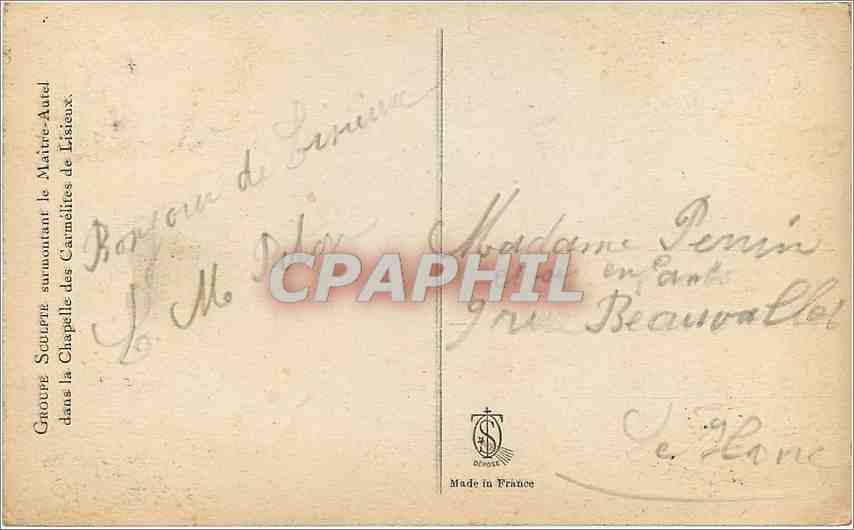 GROUPE SCULPTÉ surmontant le Maître-Autel
dans la Chapelle des Carmélites de Lisieux.
Bonjour de Lisieux
L. M.
Madame Perrin
et ses enfants
9 rue Beauvallet
Le Havre
CPAPHIL
DÉPOSÉ
Made in France